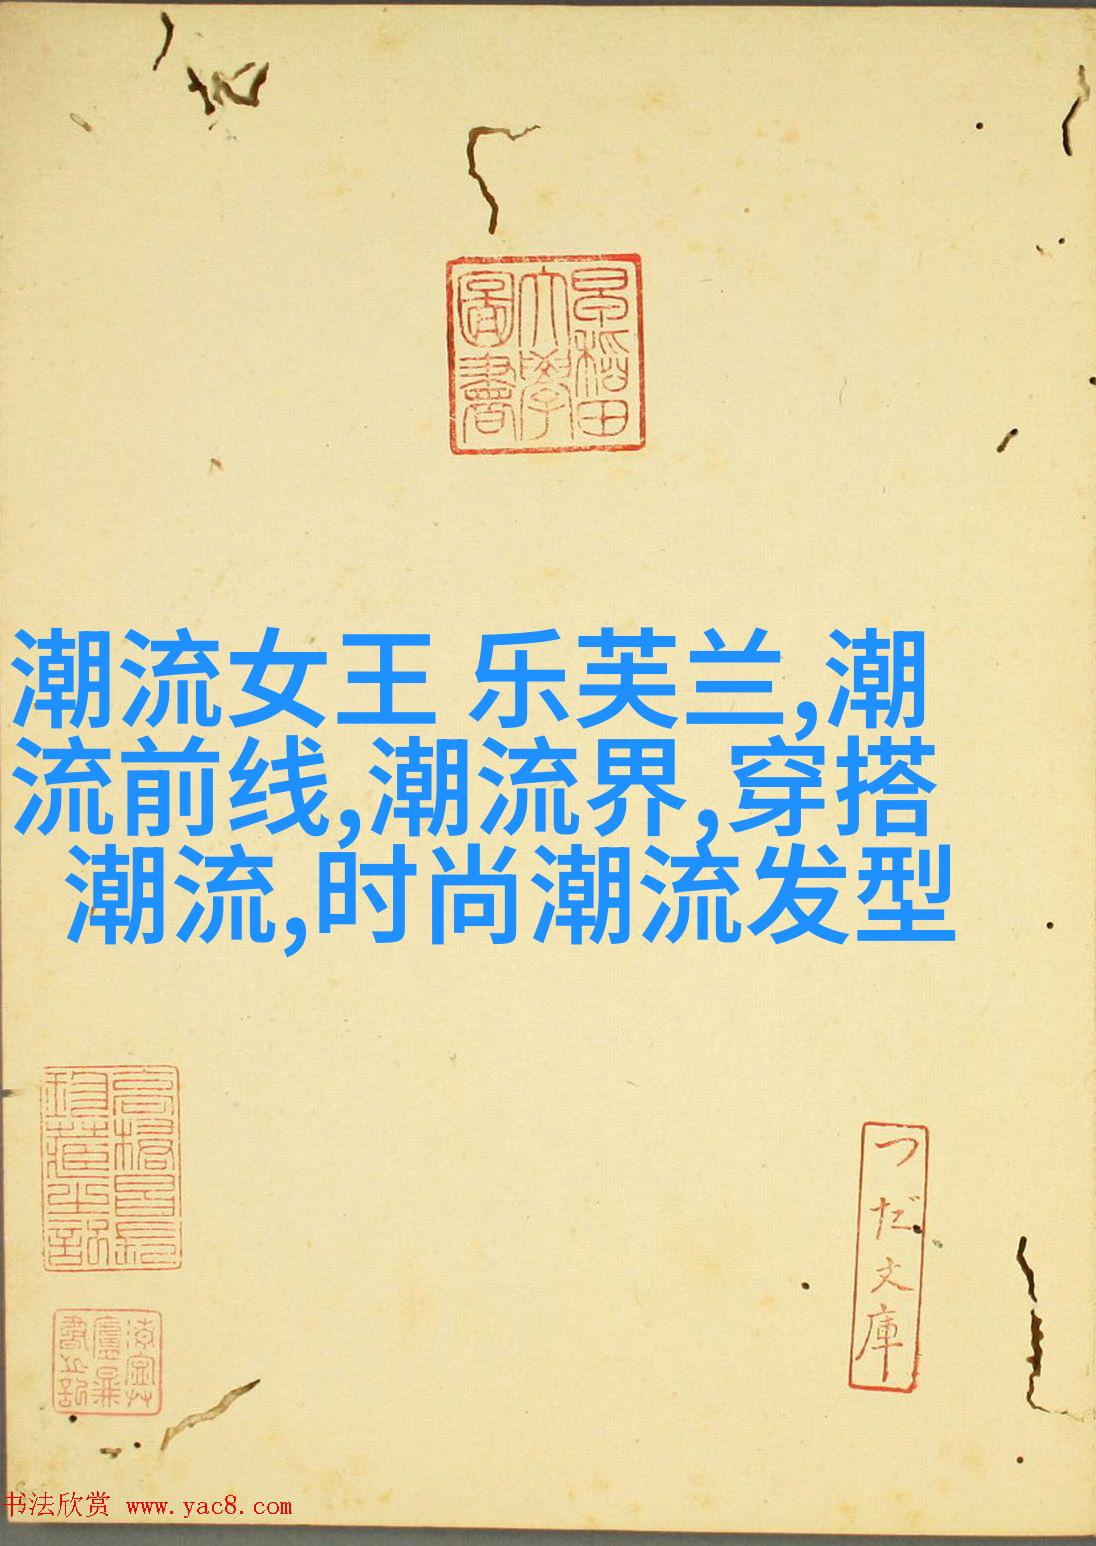 早稻田
大學
圖書
潮流女王 乐芙兰,潮
流前线,潮流界,穿搭
潮流,时尚潮流发型
つだ文庫
书法欣赏 www.yac8.com